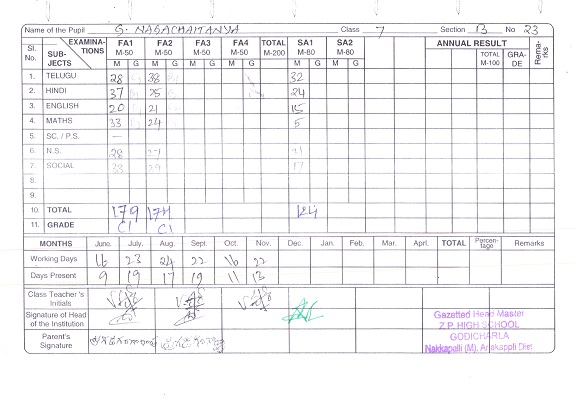 Name of the Pupil S. NAGACHAITANYA Class 7 Section B No 23
Sl. No. EXAMINATIONS SUBJECTS FA1 M-50 FA2 M-50 FA3 M-50 FA4 M-50 TOTAL M-200 SA1 M-80 SA2 M-80 ANNUAL RESULT TOTAL M-100 GRADE Remarks
M G M G M G M G M G M G
1. TELUGU 28 38 32
2. HINDI 37 25 24
3. ENGLISH 20 21 15
4. MATHS 33 24 5
5. SC. / P.S. —
6. N.S. 28 27 21
7. SOCIAL 33 39 17
8.
9.
10. TOTAL 179 174
11. GRADE C1 C1
MONTHS June. July. Aug. Sept. Oct. Nov. Dec. Jan. Feb. Mar. Aprl. TOTAL Percentage Remarks
Working Days 16 23 24 22 16 22
Days Present 9 19 17 19 11 13
Class Teacher's Initials
Signature of Head of the Institution
Parent's Signature
Gazetted Head Master
Z.P. HIGH SCHOOL
GODICHARLA
Nakkapalli (M), Anakappli Dist